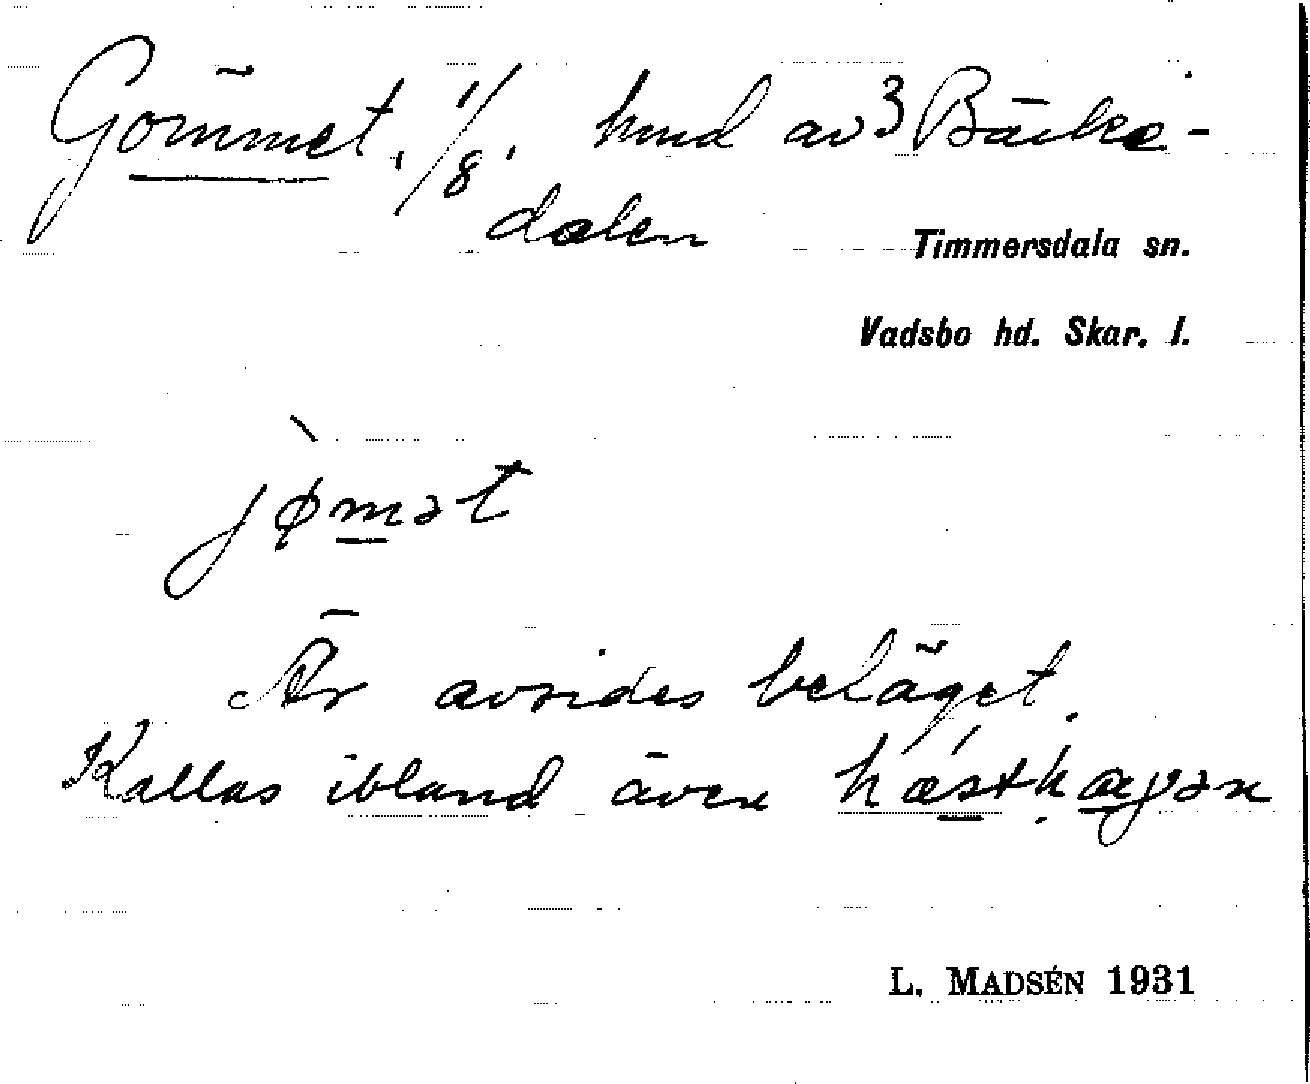 Gömmet. 1/8. hmd av 3 Bäcke-
dalen
Timmersdala sn.
Vadsbo hd. Skar. l.
jø̀mət
Är avsides beläget.
Kallas ibland även hǽsthaɣən
L. MADSÉN 1931